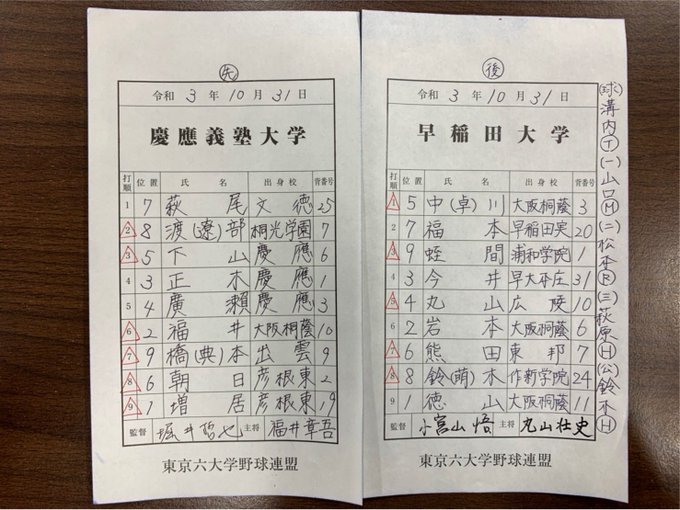 先
令和 3 年 10 月 31 日
慶應義塾大学
打順 位置 氏 名 出身校 背番号
1 7 萩尾 文徳 25
2 8 渡(遼)部 桐光学園 7
3 5 下山 慶應 6
4 3 正木 慶應 1
5 4 廣瀬 慶應 3
6 2 福井 大阪桐蔭 10
7 9 橋(典)本 出雲 9
8 6 朝日 彦根東 2
9 1 増居 彦根東 19
監督 堀井哲也 主将 福井章吾
東京六大学野球連盟
後
令和 3 年 10 月 31 日
早稲田大学
打順 位置 氏 名 出身校 背番号
1 5 中(卓)川 大阪桐蔭 3
2 7 福本 早稲田実 20
3 9 蛭間 浦和学院 1
4 3 今井 早大本庄 31
5 4 丸山 広陵 10
6 2 岩本 大阪桐蔭 6
7 6 熊田 東邦 7
8 8 鈴(萌)木 作新学院 24
9 1 徳山 大阪桐蔭 11
監督 小宮山悟 主将 丸山壮史
東京六大学野球連盟
(球)溝内Ⓣ(一)山口Ⓗ(二)松本Ⓡ(三)萩原Ⓗ(公)鈴木Ⓗ